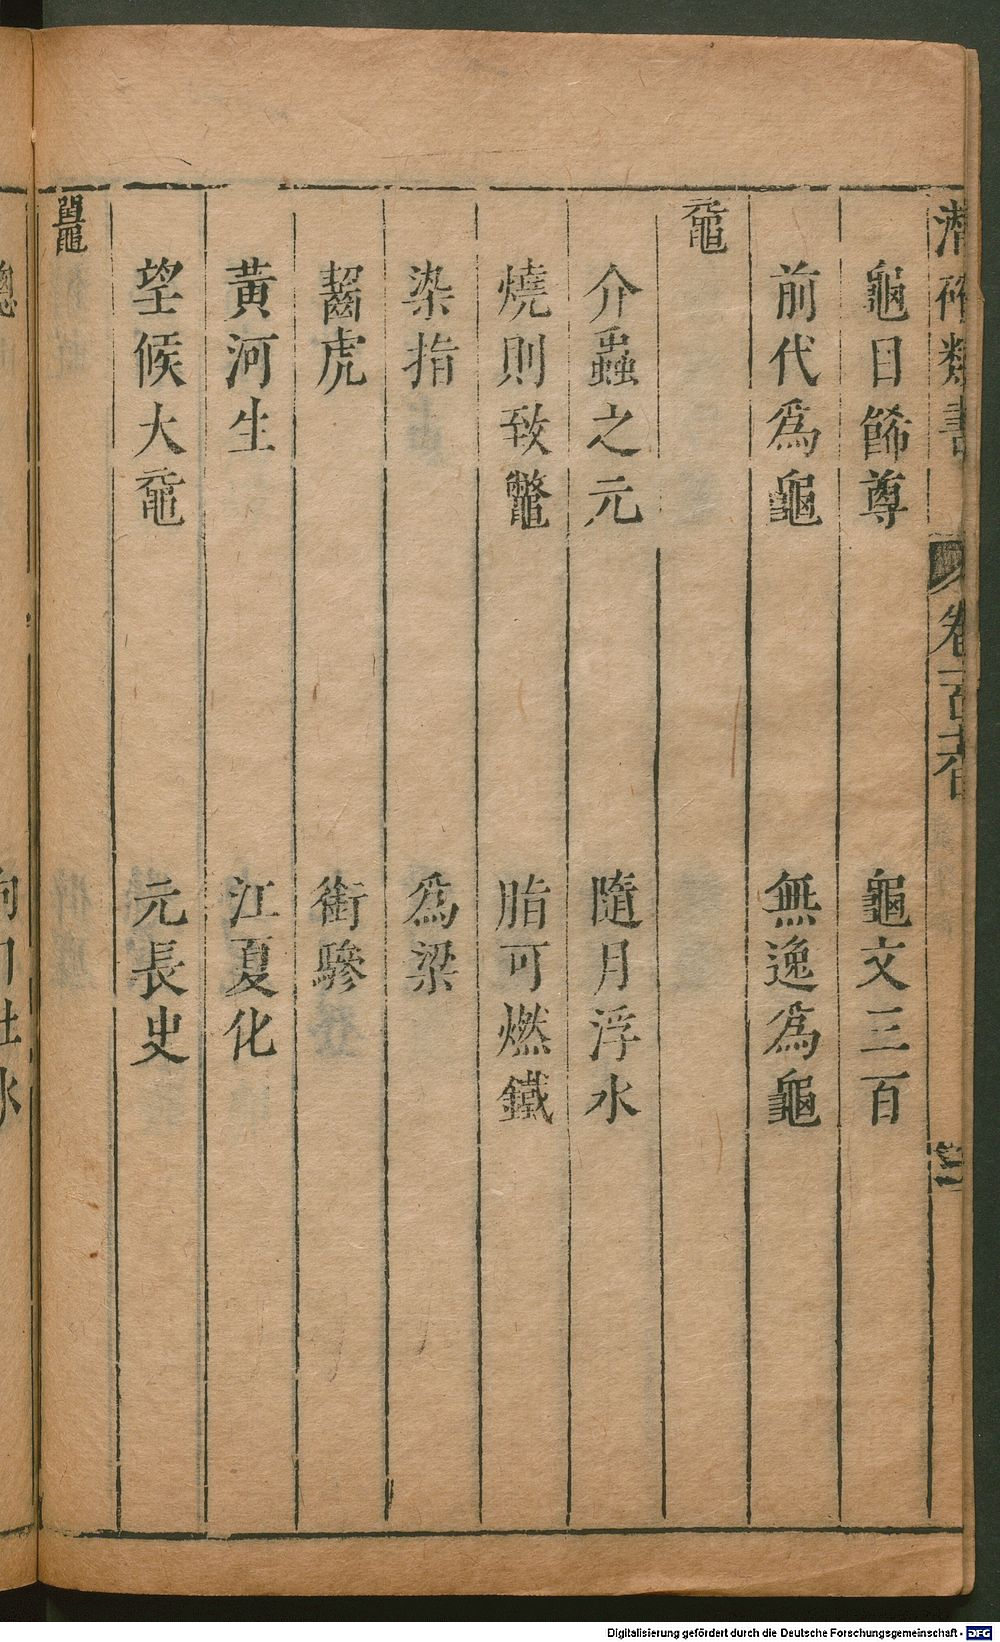 潛確類書 卷一百十七
龜目飾尊 龜文三百
前代爲龜 無逸爲龜
黿
介蟲之元 隨月浮水
燒則致鼈 脂可燃鐵
染指 爲梁
齧虎 銜驂
黃河生 江夏化
望候大黿 元長史
鼉
Digitalisierung gefördert durch die Deutsche Forschungsgemeinschaft - DFG